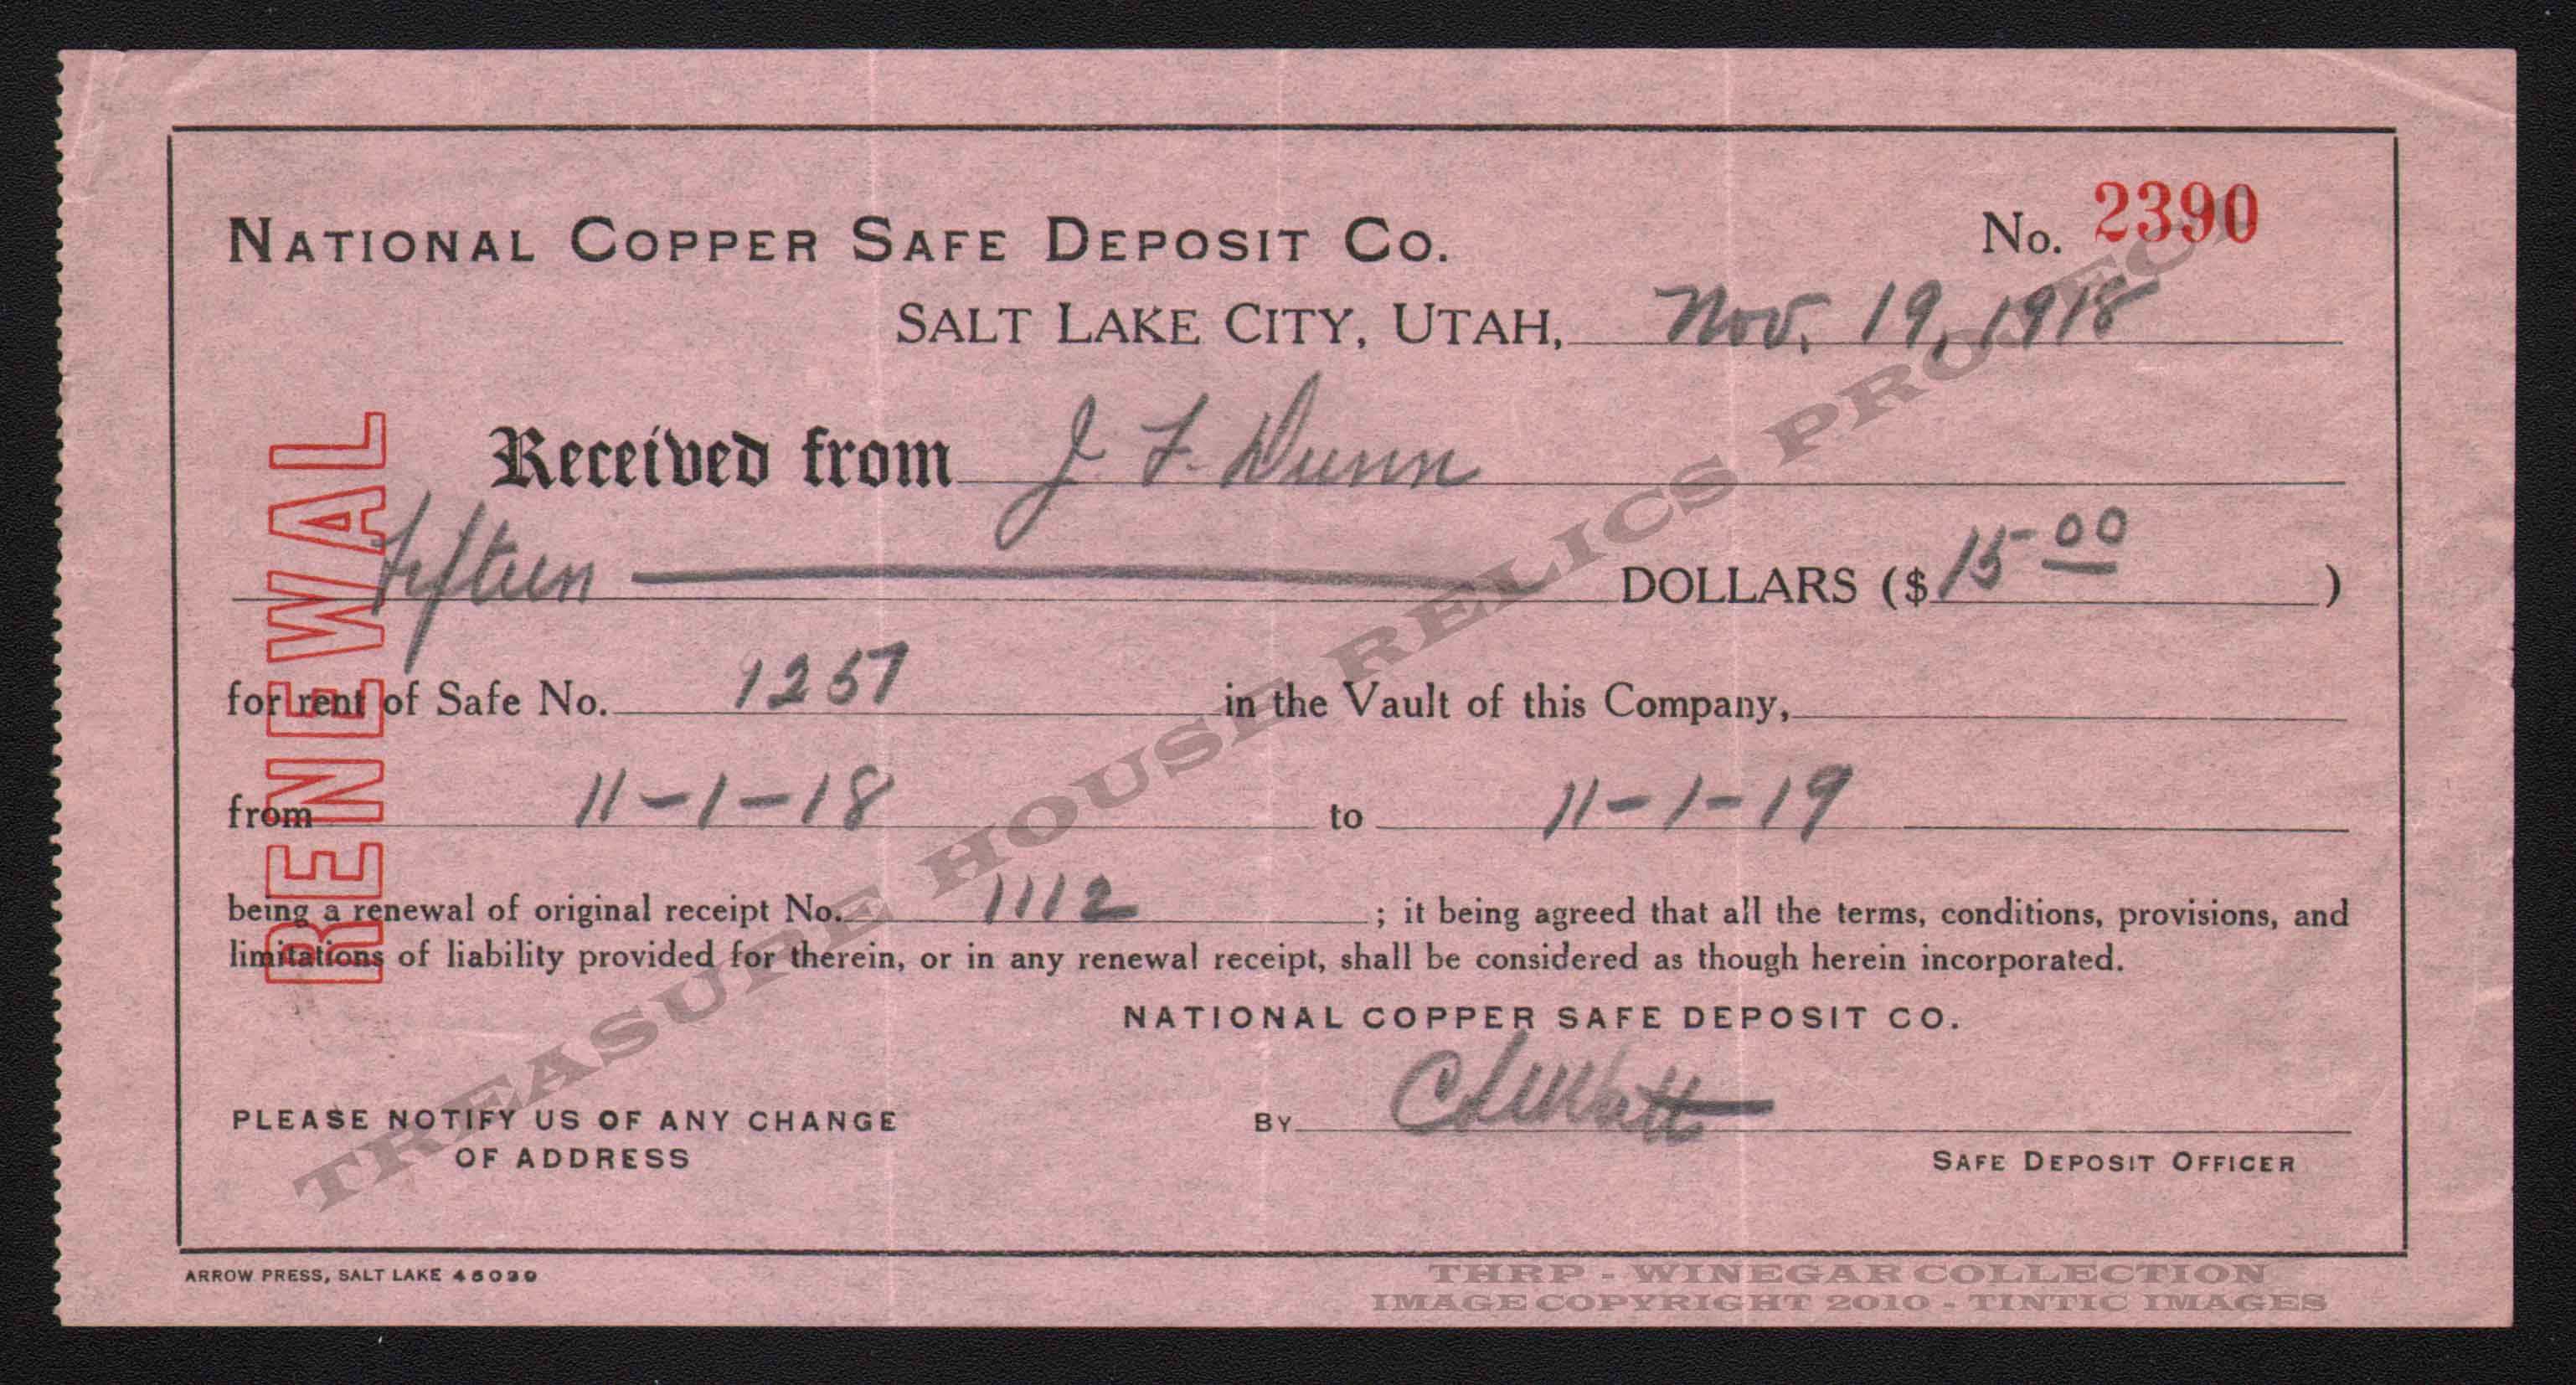 NATIONAL COPPER SAFE DEPOSIT CO.
No. 2390
SALT LAKE CITY, UTAH, Nov. 19, 1918
Received from J. F. Dunn
Fifteen DOLLARS ($ 15 00 )
for rent of Safe No. 1257 in the Vault of this Company,
from 11-1-18 to 11-1-19
being a renewal of original receipt No. 1112 ; it being agreed that all the terms, conditions, provisions, and
limitations of liability provided for therein, or in any renewal receipt, shall be considered as though herein incorporated.
RENEWAL
NATIONAL COPPER SAFE DEPOSIT CO.
PLEASE NOTIFY US OF ANY CHANGE
OF ADDRESS
BY
SAFE DEPOSIT OFFICER
ARROW PRESS, SALT LAKE
TREASURE HOUSE RELICS PROJECT
THRP - WINEGAR COLLECTION
IMAGE COPYRIGHT 2010 - TINTIC IMAGES